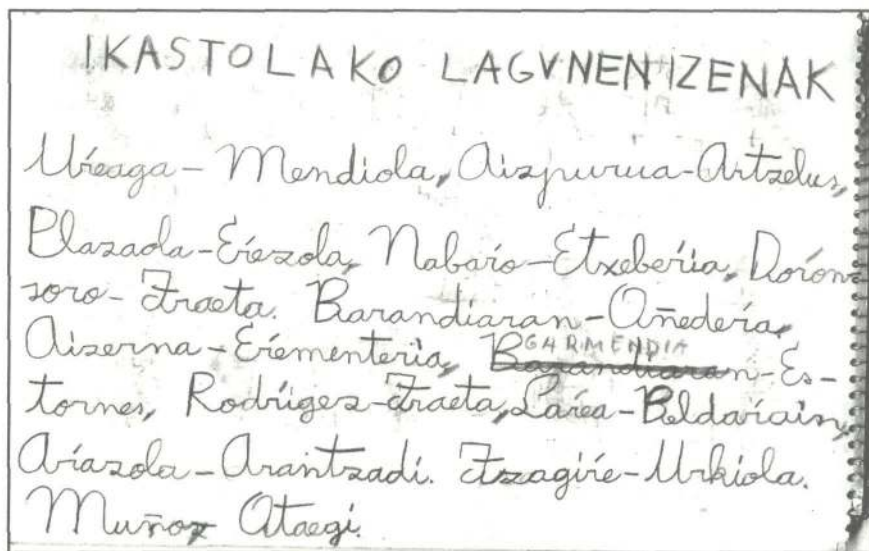 IKASTOLAKO LAGUNEN IZENAK
Uŕeaga - Mendiola, Aizpurua-Artzelus,
Plazaola-Eŕezola, Nabaŕo-Etxebeŕia, Doron-
soro-Iraeta. Barandiaran-Añedeŕa,
Aizerna-Eŕementeria, GARMENDIA
Barandiaran-Es-
tornes, Rodŕigez-Iraeta, Laŕea-Beldaŕain,
Aŕazola-Arantzadi. Itzagiŕe-Urkiola.
Muñoz Otaegi.